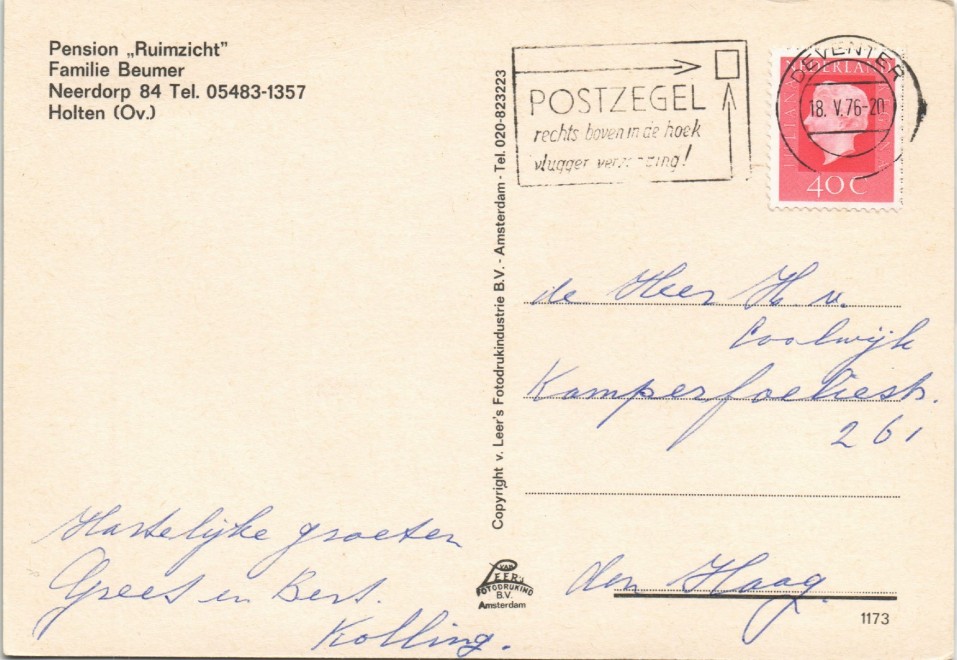 Pension „Ruimzicht”
Familie Beumer
Neerdorp 84 Tel. 05483-1357
Holten (Ov.)
POSTZEGEL
rechts boven in de hoek
vlugger
DEVENTER
18. V. 76-20
NEDERLAND
JULIANA
40 C
Copyright v. Leer's Fotodrukindustrie B.V. - Amsterdam - Tel. 020-823223
de Heer H. v.
Coolwijk
Kamperfoeliestr.
261
den Haag.
Hartelijke groeten
Grees en Bert.
Kolling.
VAN
LEER'S
FOTODRUKIND
B.V.
Amsterdam
1173